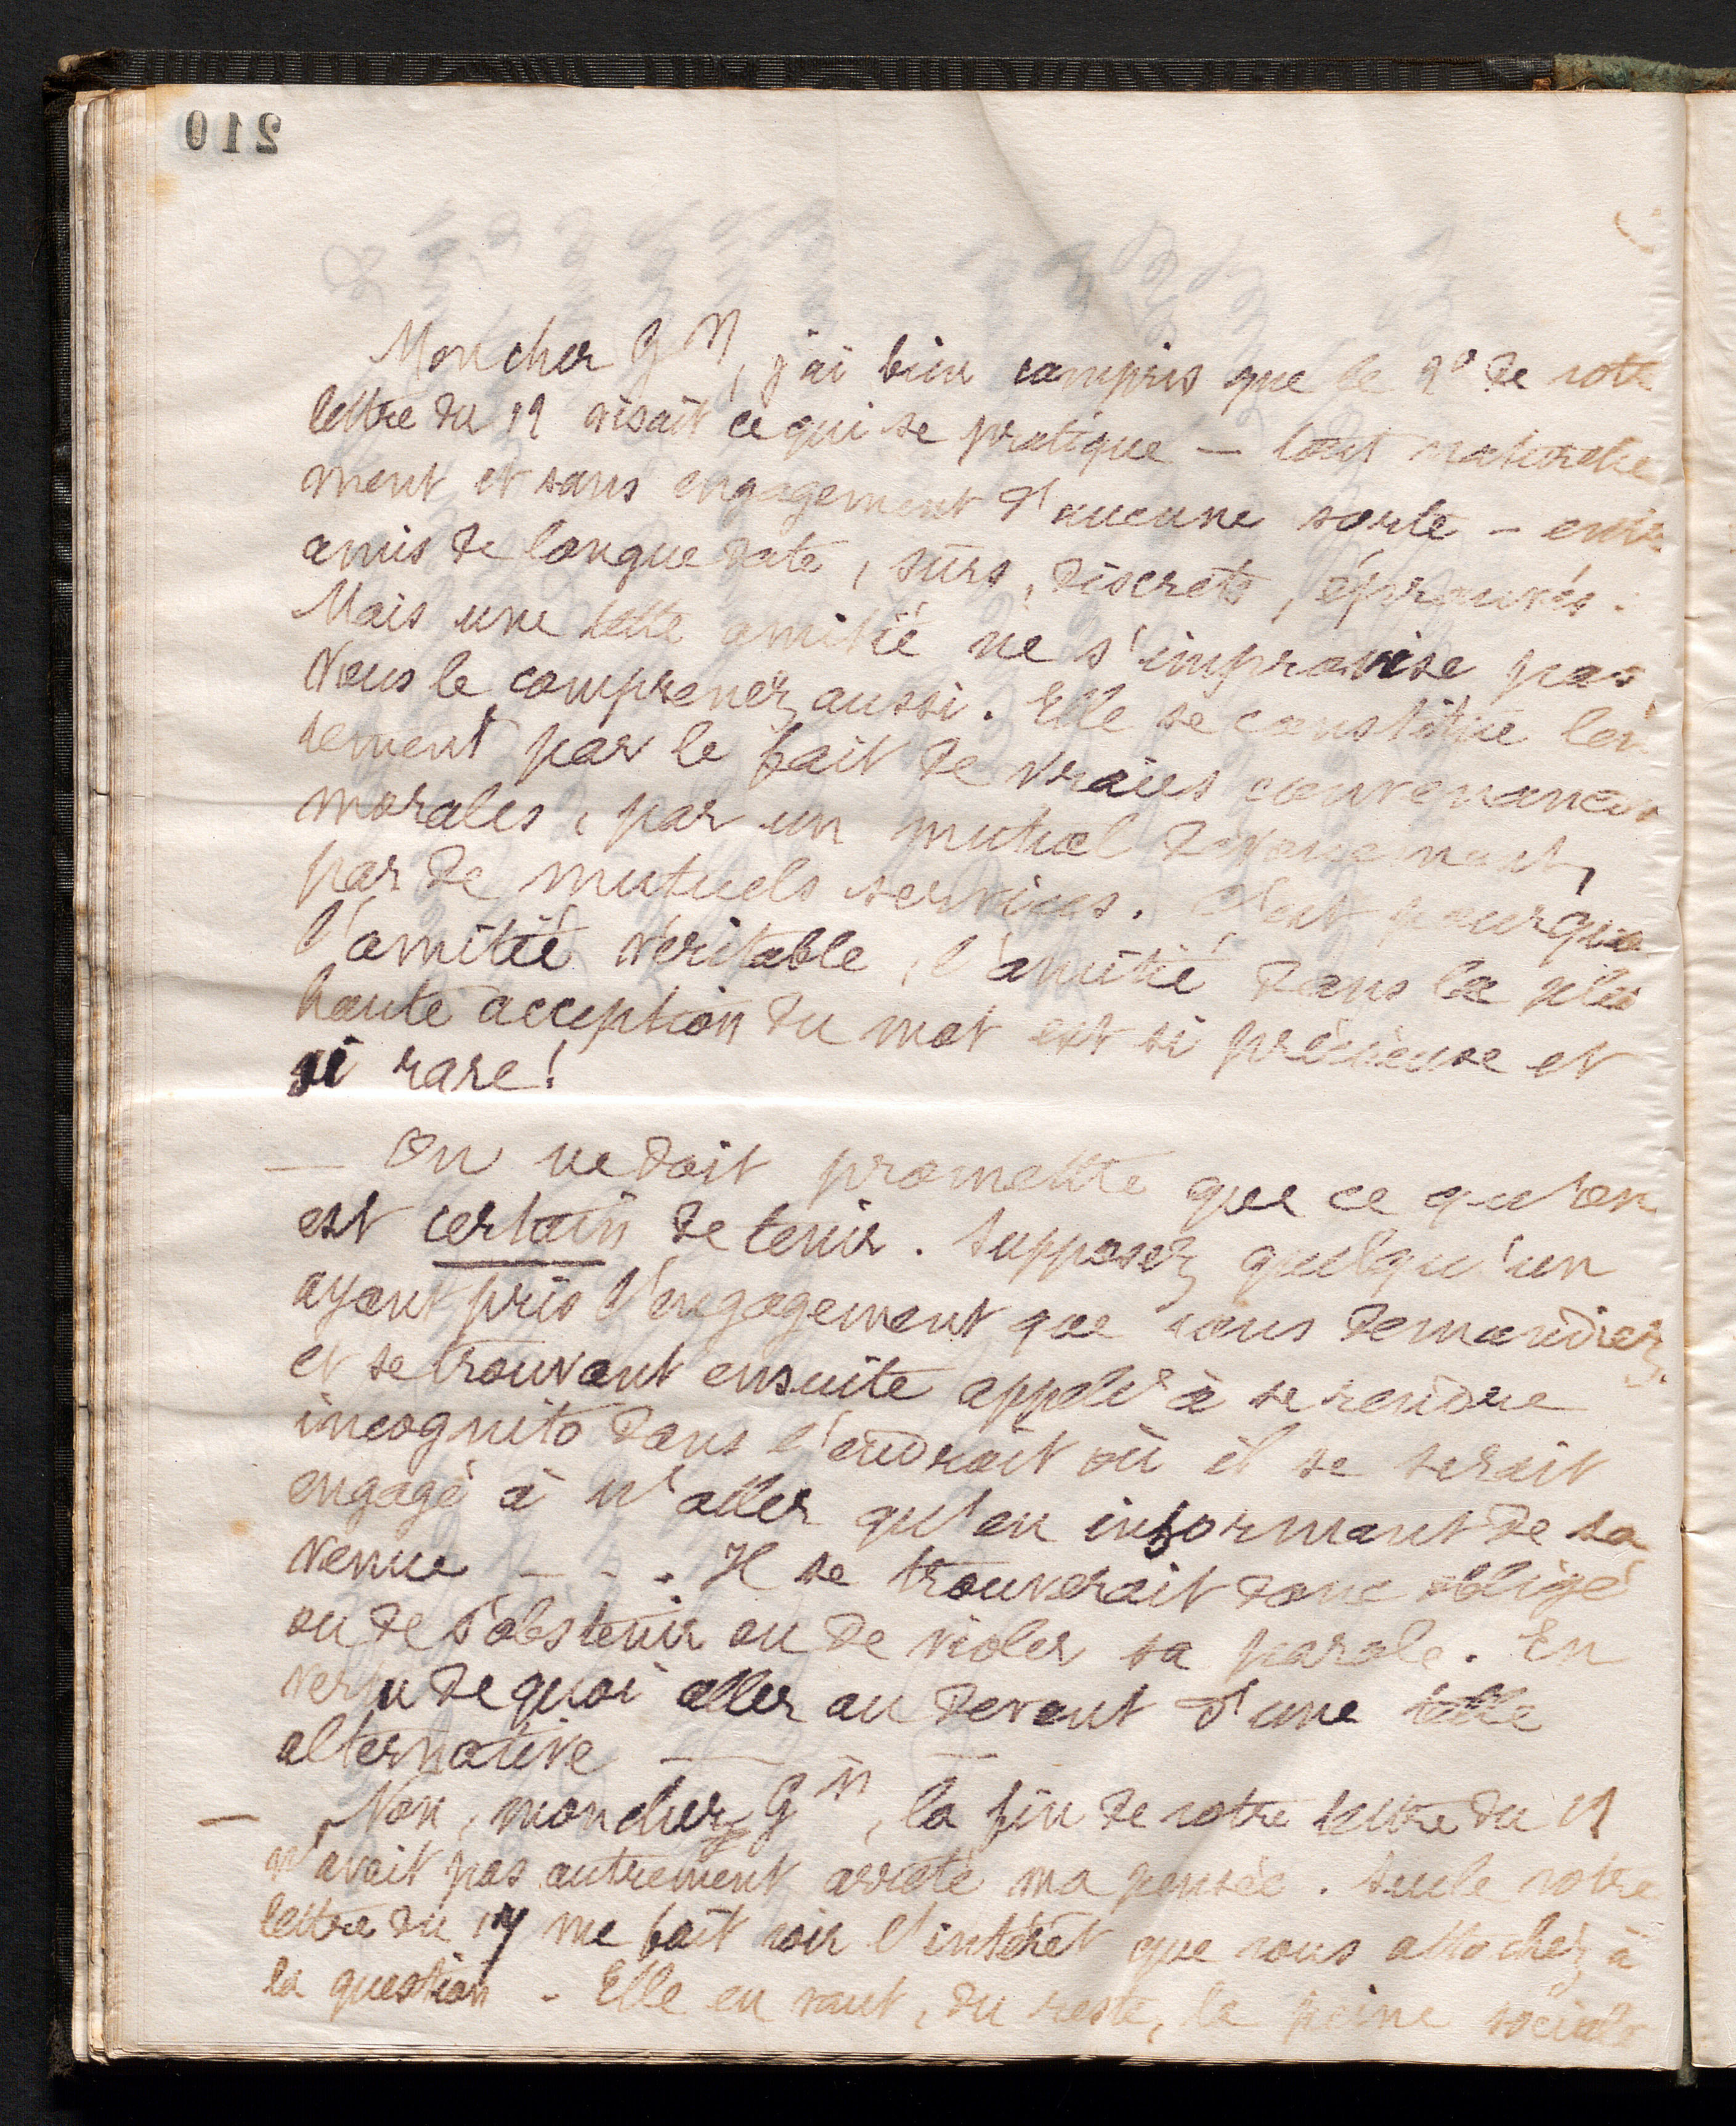 210
Mon cher Gn, j'ai bien compris que le 2° de votre
lettre du 12 visait ce qui se pratique — tout naturelle
ment et sans engagement d'aucune sorte — entre
amis de longue date, sûrs, discrets, éprouvés.
Mais une telle amitié ne s'improvise pas
Vous le comprenez aussi. Elle se constitue len
tement par le fait de vraies convenances
morales, par un mutuel dévouement,
par de mutuels services. C'est pourquoi
l'amitié véritable, l'amitié dans la plus
haute acception du mot est si précieuse et
si rare!
— On ne doit promettre que ce qu'on
est certain de tenir. Supposez quelqu'un
ayant pris l'engagement que vous demandiez
et se trouvant ensuite appelé à se rendre
incognito dans l'endroit où il se serait
engagé à n'aller qu'en informant de sa
venue - - . Il se trouverait donc obligé
ou de s'abstenir ou de violer sa parole. En
vertu de quoi aller au devant d'une telle
alternative — —
— Non, mon cher Gn, la fin de votre lettre du
n'avait pas autrement arrêté ma pensée. Seule votre
lettre du 14 me fait voir l'intérêt que vous attachez à
la question - Elle en vaut, du reste, la peine